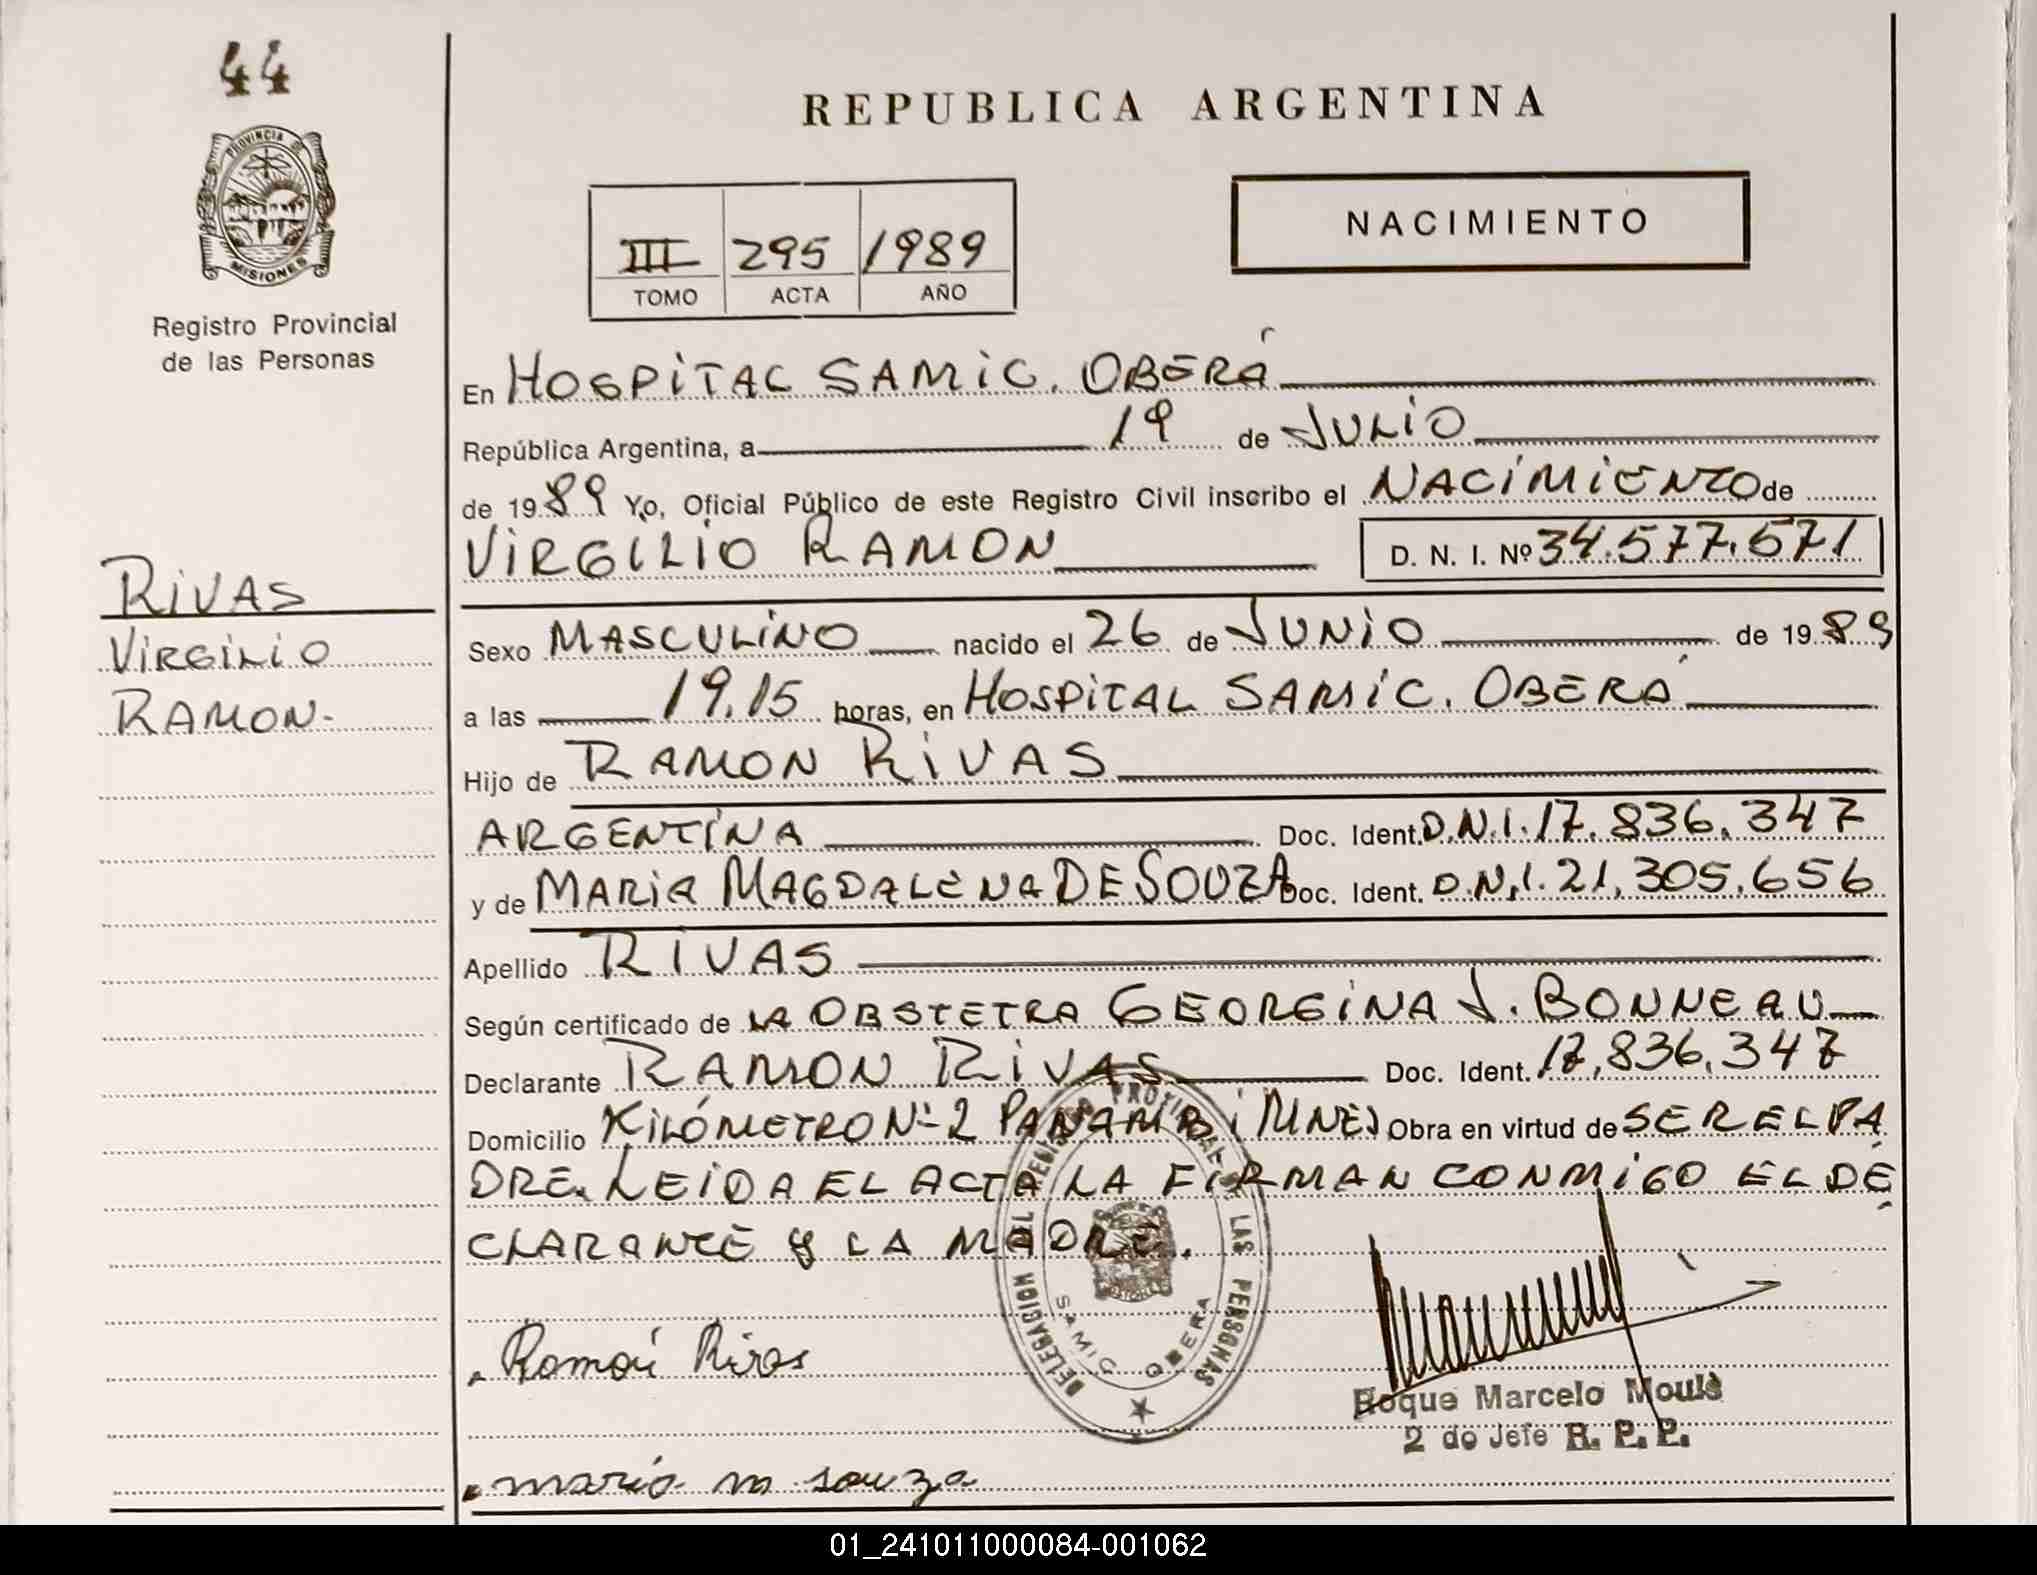 44
PROVINCIA DE
MISIONES
Registro Provincial
de las Personas
REPUBLICA ARGENTINA
III 295 1989
TOMO ACTA AÑO
NACIMIENTO
En HOSPITAL SAMIC. OBERÁ
República Argentina, a 19 de JULIO
de 1989 Yo, Oficial Público de este Registro Civil inscribo el NACIMIENTO de
VIRGILIO RAMON D. N. I. Nº 34.577.571
RIVAS
VIRGILIO
RAMON.
Sexo MASCULINO nacido el 26 de JUNIO de 1989
a las 19.15 horas, en HOSPITAL SAMIC. OBERÁ
Hijo de RAMON RIVAS
ARGENTINA Doc. Ident. D.N.I. 17.836.347
y de MARIA MAGDALENA DE SOUZA Doc. Ident. D.N.I. 21.305.656
Apellido RIVAS
Según certificado de LA OBSTETRA GEORGINA J. BONNEAU
Declarante RAMON RIVAS Doc. Ident. 17.836.347
Domicilio KILÓMETRO Nº 2 PANAMBI MNES Obra en virtud de SER EL PA
DRE. LEIDA EL ACTA LA FIRMAN CONMIGO EL DE
CLARANTE Y LA MADRE.
DELEGACION DEL REGISTRO PROVINCIAL DE LAS PERSONAS
SAMIC OBERA
Ramón Rivas
Roque Marcelo Moulè
2 do Jefe R. P. P.
maria m souza
01_241011000084-001062